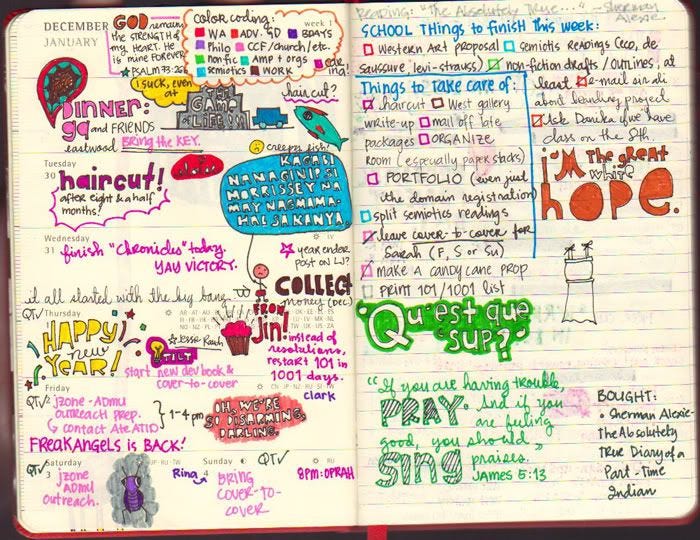 DECEMBER
JANUARY
GOD remains
the STRENGTH of
my HEART. He
is mine FOREVER.
PSALM 73:26
Color coding:
WA ADV. GD BDAYS
Philo CCF/church/etc.
nonfic AMP + orgs
semiotics WORK
week 1
I SUCK, EVEN
AT
THE
GAME
OF LIFE
haircut?
DINNER:
gq and FRIENDS
eastwood Bring the KEY.
creepy fish!
Tuesday
30
haircut!
after eight & a half
months!
KAGABI
NANAGINIP SI
MORRISSEY NA
MAY NAGMAMA-
HAL SA KANYA.
Wednesday
31
finish "Chronicles" today.
YAY VICTORY.
year ender
post on LJ?
it all started with the big bang
COLLECT
money (DEC)
FROM
Jin!
QTV Thursday
HAPPY
new
YEAR!
Jessie Rauch
TILT
start new dev book &
cover-to-cover
instead of
resolutions,
restart 101 in
1001 days.
clark
Friday
QTV 2
jzone-ADMU
outreach prep.
contact Ate ATID
1-4 pm
OH, WE'RE
SO DISARMING,
DARLING.
FREAKANGELS is BACK!
QTV Saturday
3
jzone
ADMU
outreach.
Sunday
4
QTV
Rina
BRING
COVER-TO-
COVER
8PM: OPRAH
Reading: "The Absolutely True..." - Sherman
Alexie
SCHOOL THINGS to FINISH this week:
Western Art proposal semiotics Readings (eco, de
saussure, levi-strauss) non-fiction drafts / OUTLINES, at
least
Things to TAKE CARE of:
haircut West gallery
write-up mail off late
packages ORGANIZE
room (especially paper stacks)
PORTFOLIO (even just
the domain registration)
split semiotics readings
leave cover-to-cover for
Sarah (F, S or Su)
make a candy cane prop
PRINT 101/1001 LIST
e-mail sir ali
about project
Ask Danika if we have
class on the 5th.
I'M the great
white
HOPE.
Qu'est que
sup?
"If you are having trouble,
PRAY. And if you
are feeling
good, you should
sing praises."
JAMES 5:13
BOUGHT:
Sherman Alexie-
The Absolutely
TRUE Diary of a
Part-Time
Indian